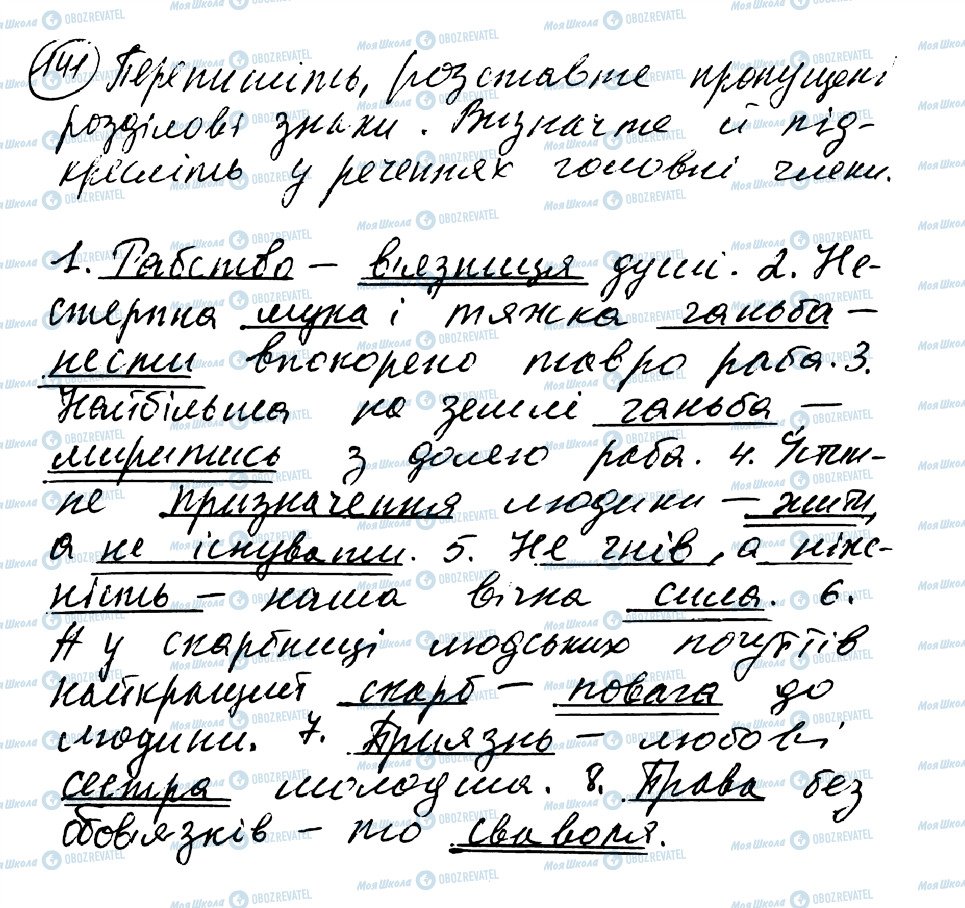 141 Перепишіть, розставте пропущені
розділові знаки. Визначте й під-
кресліть у реченнях головні члени.
1. Рабство – в'язниця душі. 2. Не-
стерпна мука і тяжка ганьба –
нести впокорено тавро раба. 3.
Найбільша на землі ганьба –
миритись з долею раба. 4. Істин-
не призначення людини – жити,
а не існувати. 5. Не гнів, а ніж-
ність – наша вічна сила. 6.
А у скарбниці людських почуттів
найкращий скарб – повага до
людини. 7. Приязнь – любові
сестра молодша. 8. Права без
обов'язків – то сваволя.